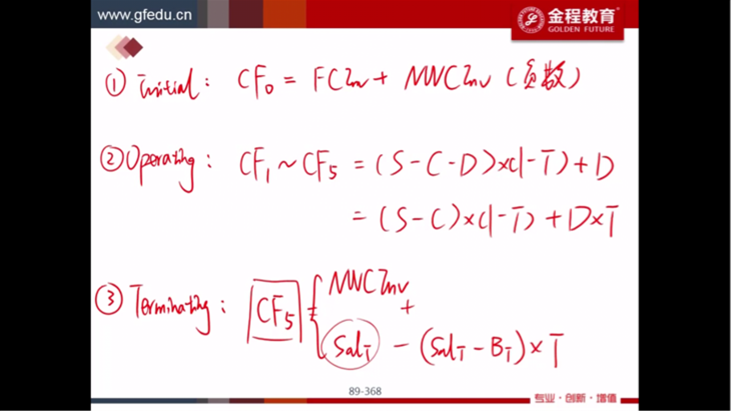 www.gfedu.cn
金程教育
GOLDEN FUTURE
① Initial: CF₀ = FCInv + NWCInv (负数)
② Operating: CF₁ ~ CF₅ = (S-C-D)×(1-T)+D
= (S-C)×(1-T)+D×T
③ Terminating: CF₅ = { NWCInv
+
Sal_T - (Sal_T - B_T)×T
89-368
专业·创新·增值